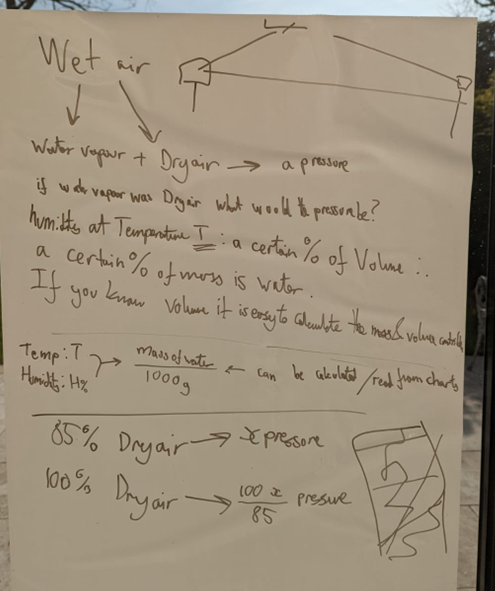 Wet air
Water vapour + Dry air → a pressure
if water vapour was Dry air what would the pressure be?
humidity at Temperature T : a certain % of Volume ∴
a certain % of mass is water.
If you know Volume it is easy to calculate the mass & volume
Temp: T
Humidity: H%
→ mass of water / 1000g ← can be calculated / read from charts
85% Dry air → x pressure
100% Dry air → 100 x / 85 pressure